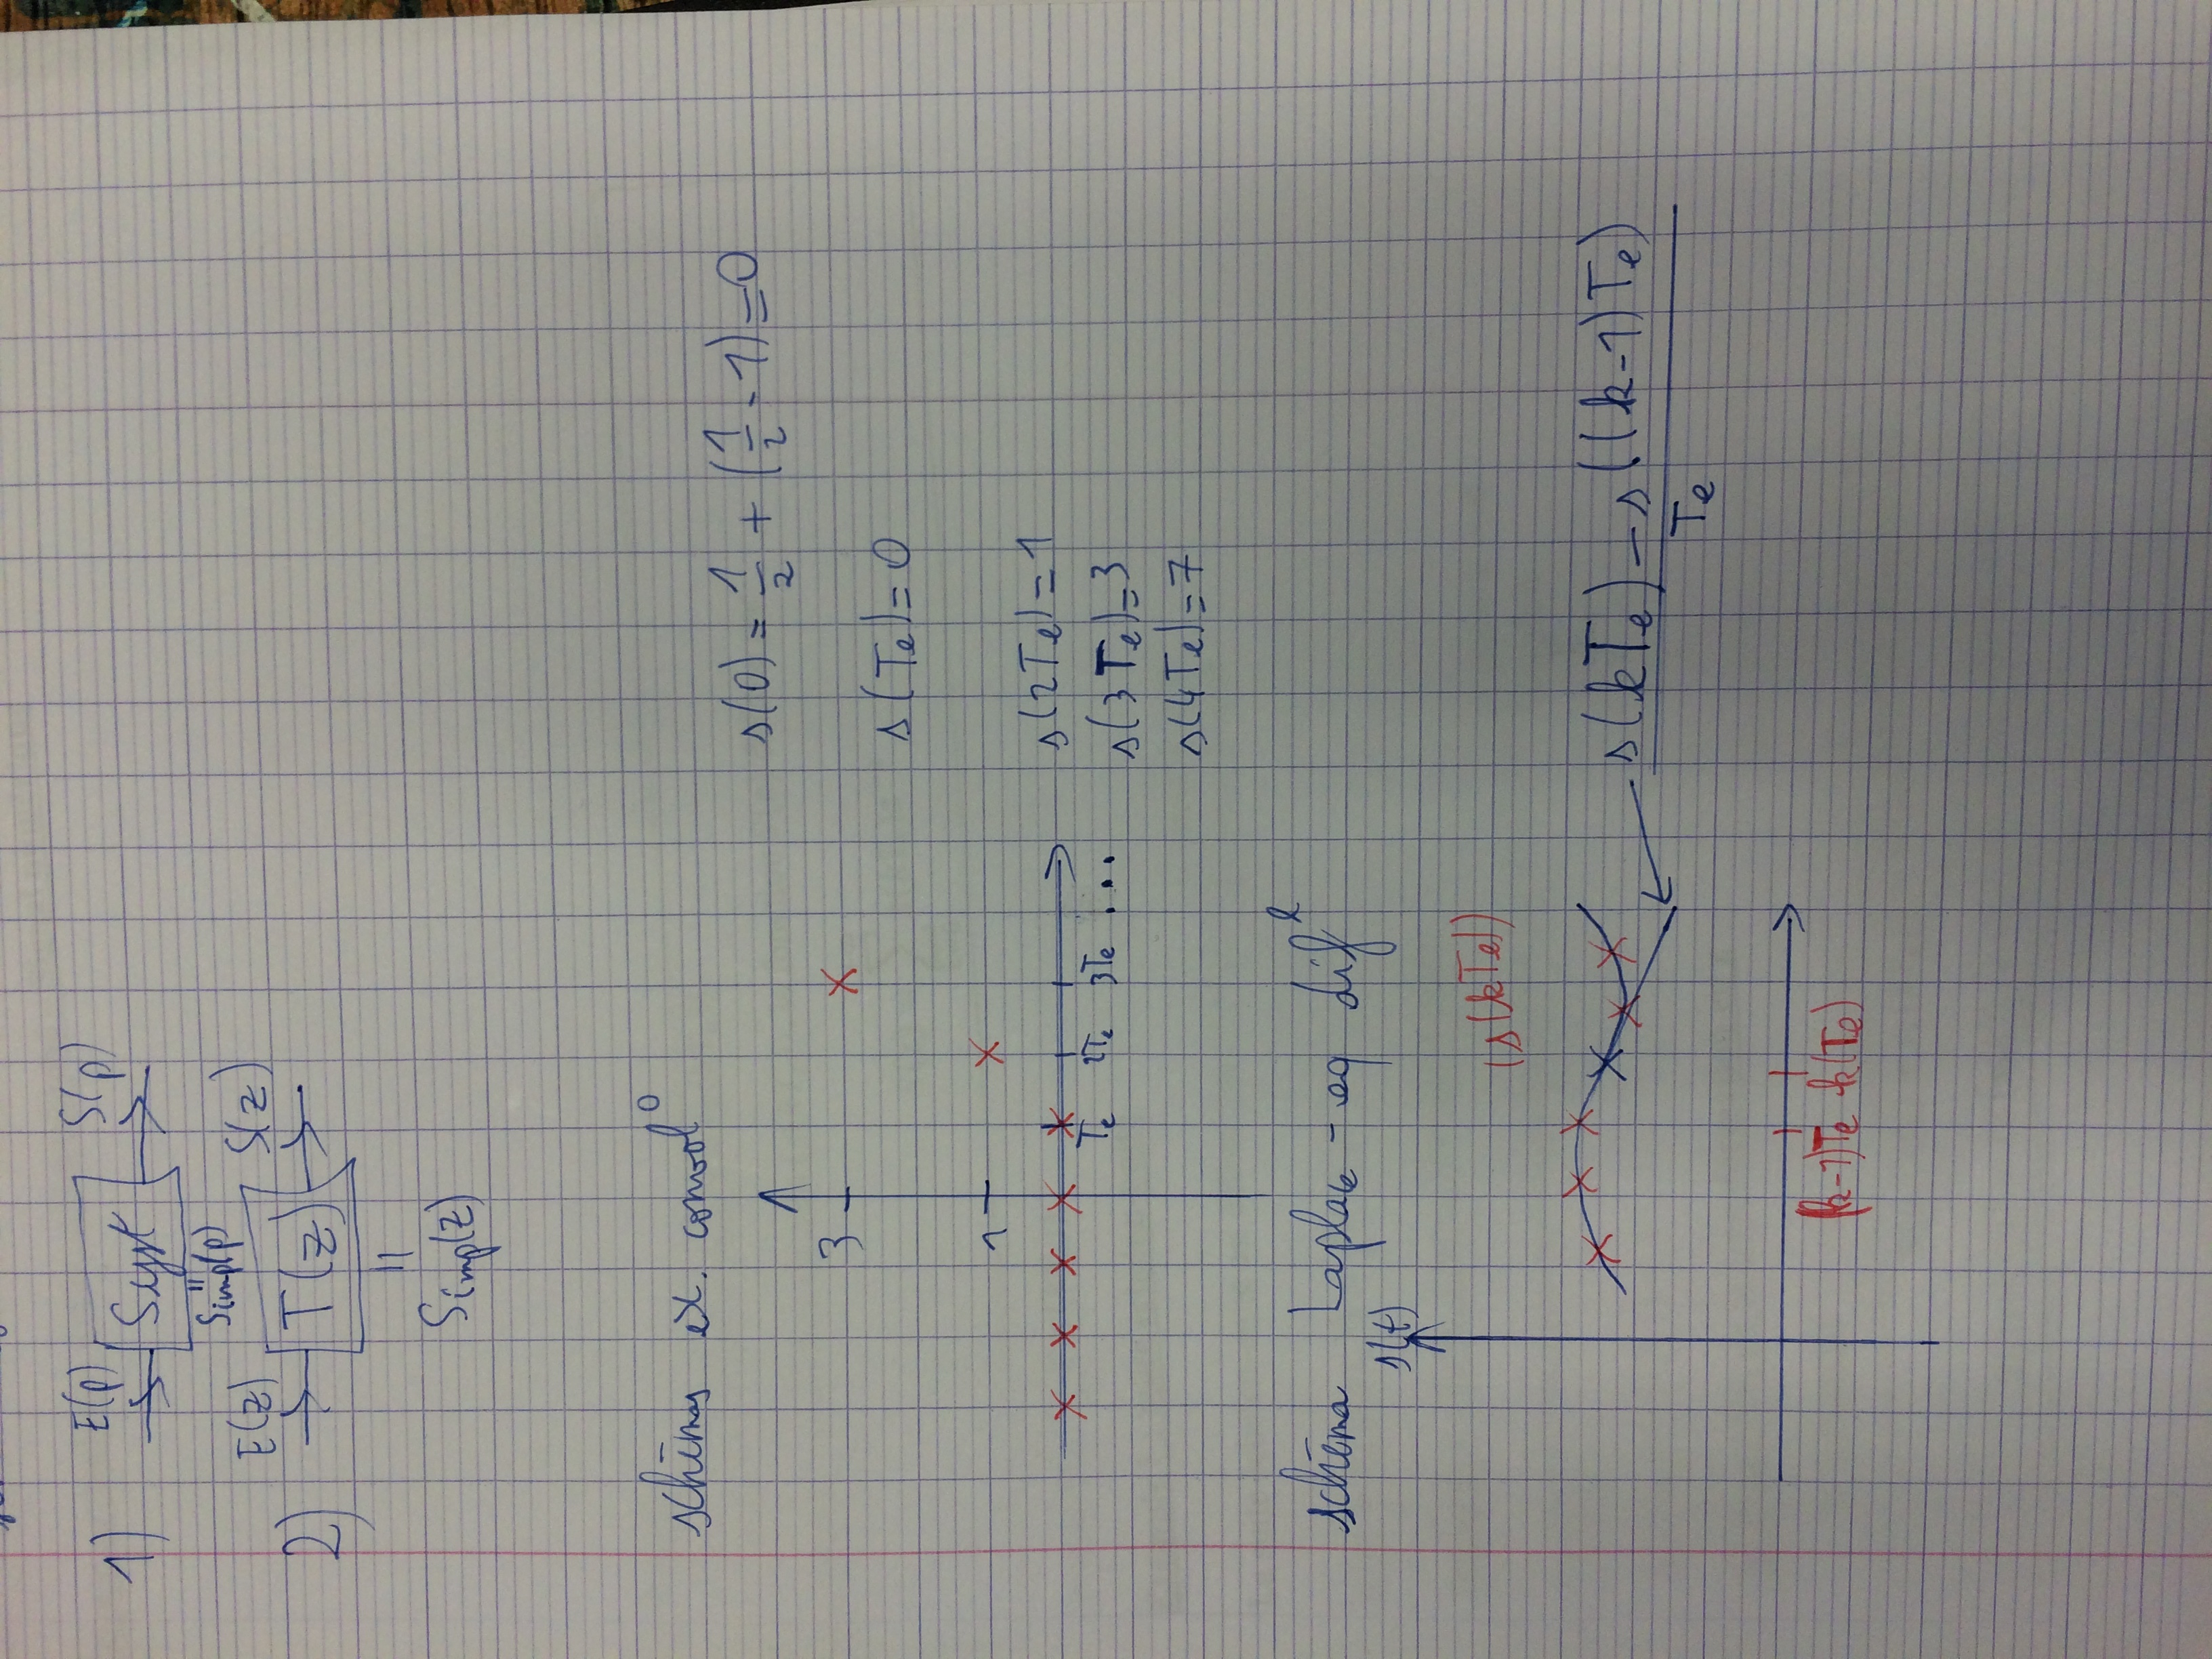 1)
E(p) Syst S(p)
"
Simp(p)
2)
E(z) T(z) S(z)
||
Simp(z)
schémas ex. convol°
s(0) = 1/2 + (1/2 - 1) = 0
3
s(Te) = 0
1
s(2Te) = 1
Te 2Te 3Te ...
s(3Te) = 3
s(4Te) = 7
schéma Laplace - eq dif^l
s(t)
(s(kTe))
s(kTe) - s((k-1)Te)
Te
(k-1)Te k(Te)